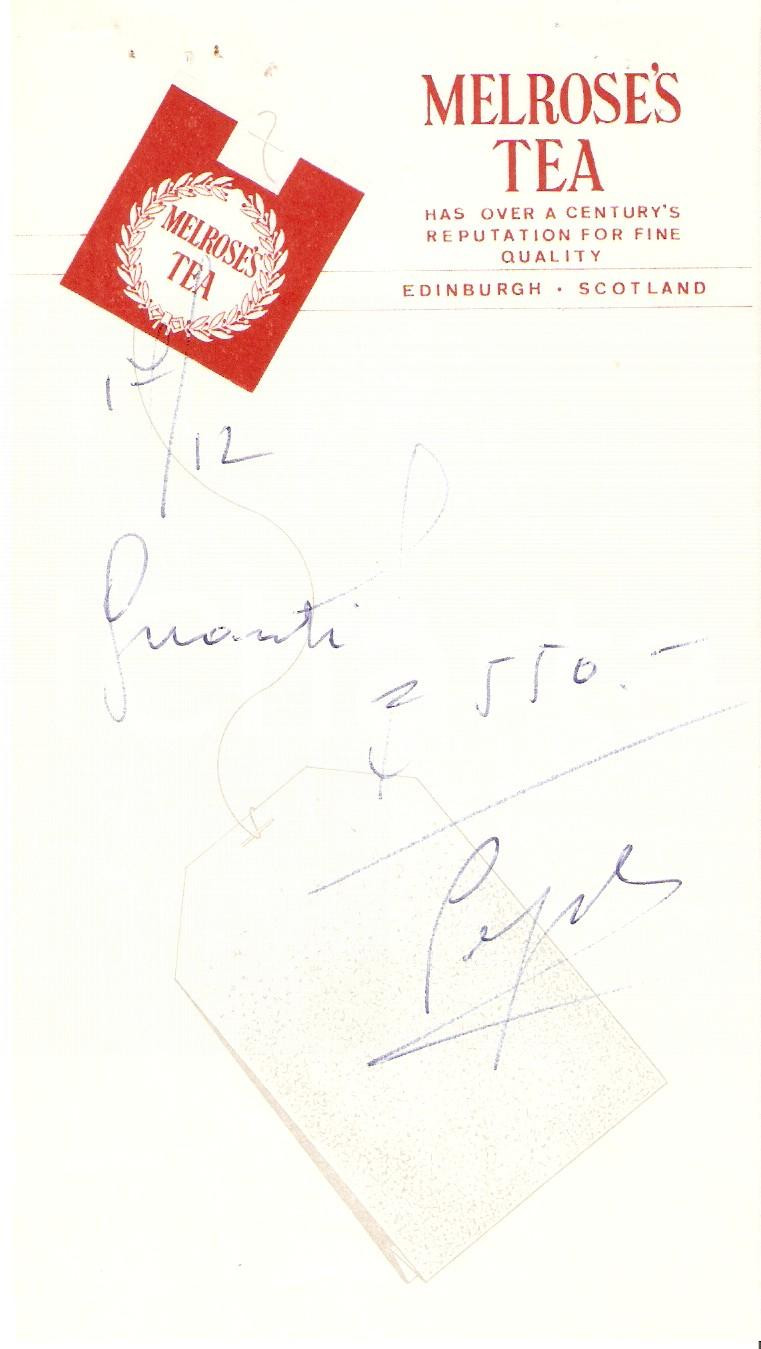 MELROSE'S
TEA
HAS OVER A CENTURY'S
REPUTATION FOR FINE
QUALITY
EDINBURGH · SCOTLAND
MELROSE'S
TEA
12
Guanti
550.-